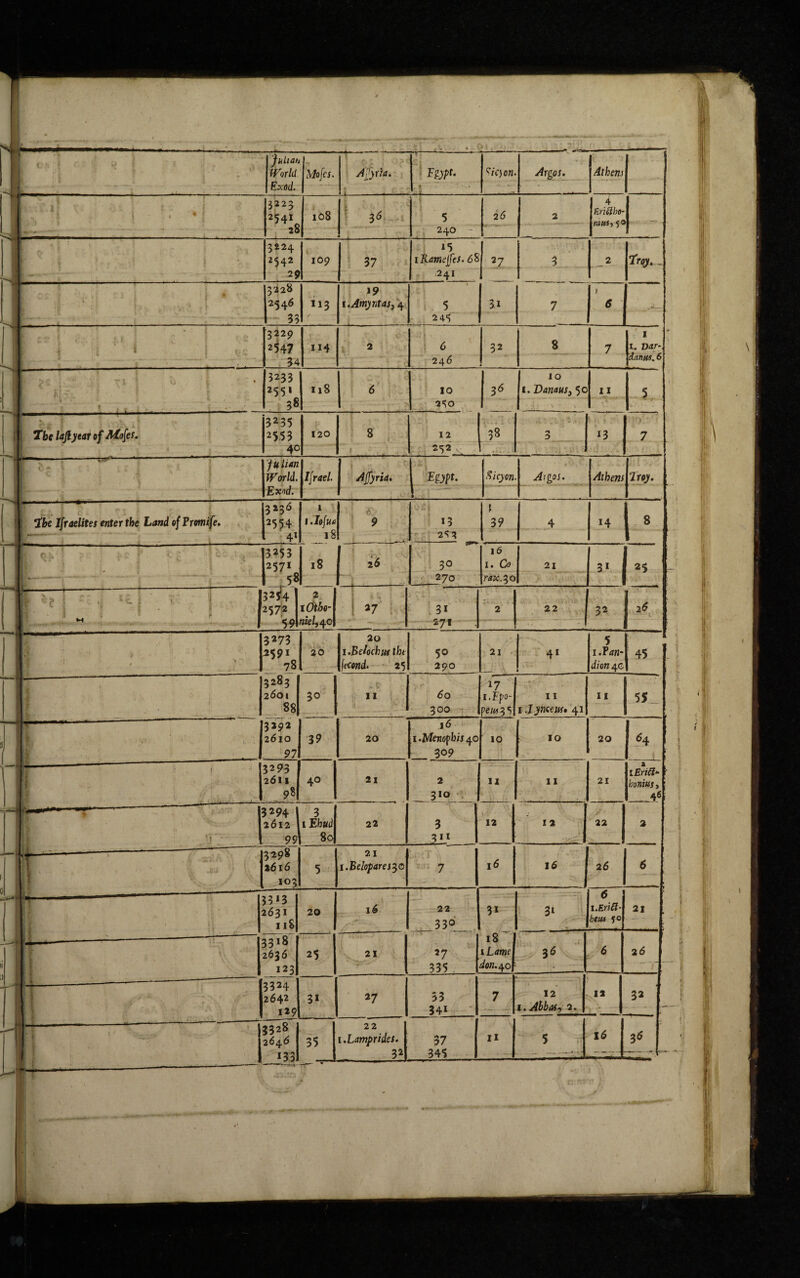 Julian World Exod. | Moses. | Aſſyria. | Egypt. | Sicyon. | Argos. | Athens
3223 2541 28 | 108 | 36 | 5 240 | 26 | 2 | 4 Ericthonius, 50
3224 2542 29 | 109 | 37 | 15 1 Rameſſes. 68 241 | 27 | 3 | 2 | Troy.
3228 2546 33 | 113 | 19 1.Amyntas, 4 | 5 245 | 31 | 7 | 6
3229 2547 34 | 114 | 2 | 6 246 | 32 | 8 | 7 | 1 1. Dardanus. 6
3233 2551 38 | 118 | 6 | 10 250 | 36 | 10 1. Danaus, 50 | 11 | 5
The laſt year of Moſes. | 3235 2553 40 | 120 | 8 | 12 252 | 38 | 3 | 13 | 7
Julian World. Exod. | Iſrael. | Aſſyria. | Egypt. | Sicyon. | Argos. | Athens | Troy.
The Iſraelites enter the Land of Promiſe. | 3236 2554 41 | 1 1.Ioſua 18 | 9 | 13 253 | 39 | 4 | 14 | 8
3253 2571 58 | 18 | 26 | 30 270 | 16 1. Corax.30 | 21 | 31 | 25
3254 2572 59 | 2 1 Othoniel, 40 | 27 | 31 271 | 2 | 22 | 32 | 26
3273 2591 78 | 20 | 20 1.Belochus the ſecond. 25 | 50 290 | 21 | 41 | 5 1.Pandion 40 | 45
3283 2601 88 | 30 | 11 | 60 300 | 17 1.Epopeus 35 | 11 1.Lynceus. 41 | 11 | 55
3292 2610 97 | 39 | 20 | 16 1.Menophis 40 309 | 10 | 10 | 20 | 64
3293 2611 98 | 40 | 21 | 2 310 | 11 | 11 | 21 | 2 1 Ericthonius, 46
3294 2612 99 | 3 1 Ehud 80 | 22 | 3 311 | 12 | 12 | 22 | 2
3298 2616 103 | 5 | 21 1.Belopares 30 | 7 | 16 | 16 | 26 | 6
3313 2631 118 | 20 | 16 | 22 330 | 31 | 31 | 6 1.Erictheus 50 | 21
3318 2636 123 | 25 | 21 | 27 335 | 18 1 Lamedon.40 | 36 | 6 | 26
3324 2642 129 | 31 | 27 | 33 341 | 7 | 12 1. Abbas, 2. | 12 | 32
3328 2646 133 | 35 | 22 1.Lamprides. 32 | 37 345 | 11 | 5 | 16 | 36